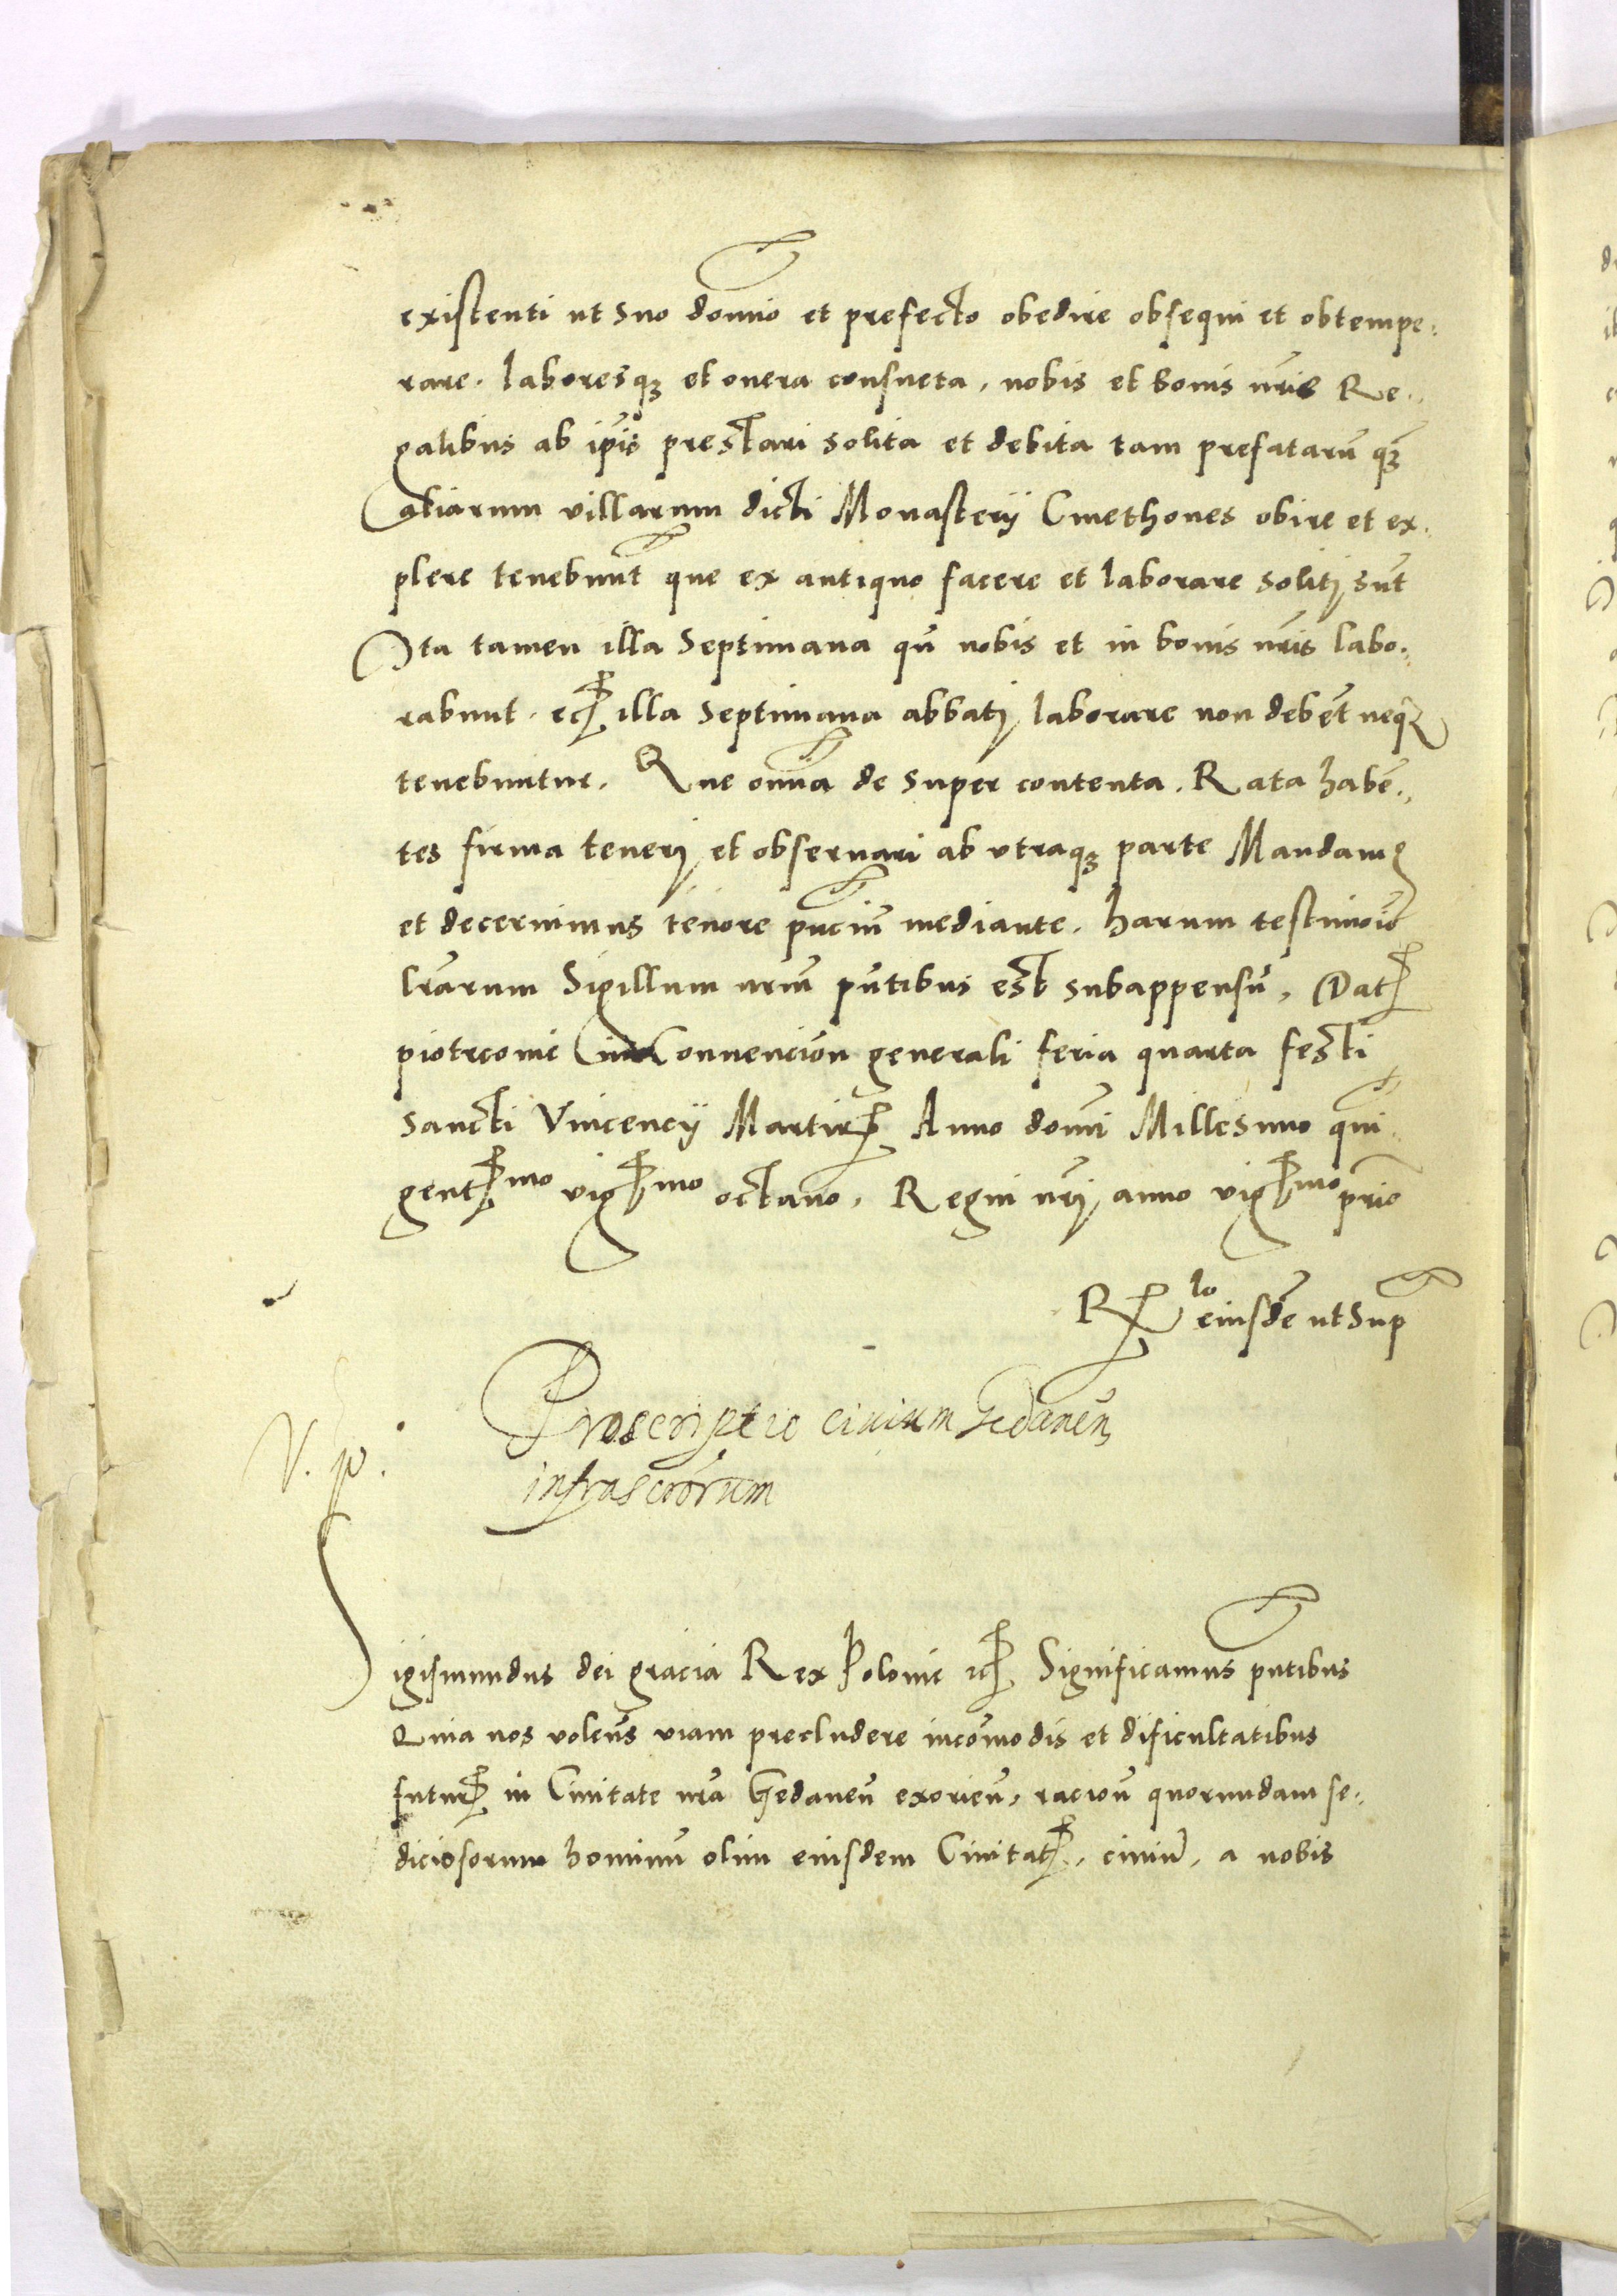 existenti ut suo domno et prefecto obedire obsequi et obtempe-
rare. laboresq; et onera consueta, nobis et bonis nris Re-
galibus ab ipis prestari solita et debita tam prefatarum q;
aliarum villarum dicti Monasterij Cmethones obire et ex-
plere tenebunt que ex antiquo facere et laborare solitj sunt
Ita tamen illa Septimana qn nobis et in bonis nris labo-
rabunt. illa septimana abbatj laborare non debent neq
tenebuntur. Que omnia de super contenta. Rata haben-
tes firma tenerj et observari ab vtraq; parte Mandamus
et decernimus tenore pncium mediante. harum testimonio
lrarum Sigillum nrum pntibus est subappensum. Dat
piotrcovie in Convencion generali feria quarta festi
sancti Vincencij Martir Anno domi Millesimo quin
gentmo vigmo octavo. Regni nrj anno vigmo primo
Rlo eiusdem ut sup
V. p.
Proscriptio civium Gedanen
infrascriptorum
Sigismundus dei gracia Rex Polonie etc Significamus pntibus
Quia nos volens viam precludere incomodis et dificultatibus
futur in Civitate nra Gedanen exorien, racion quorundam se-
diciosorum hominum olim eiusdem Civitat, civium, a nobis